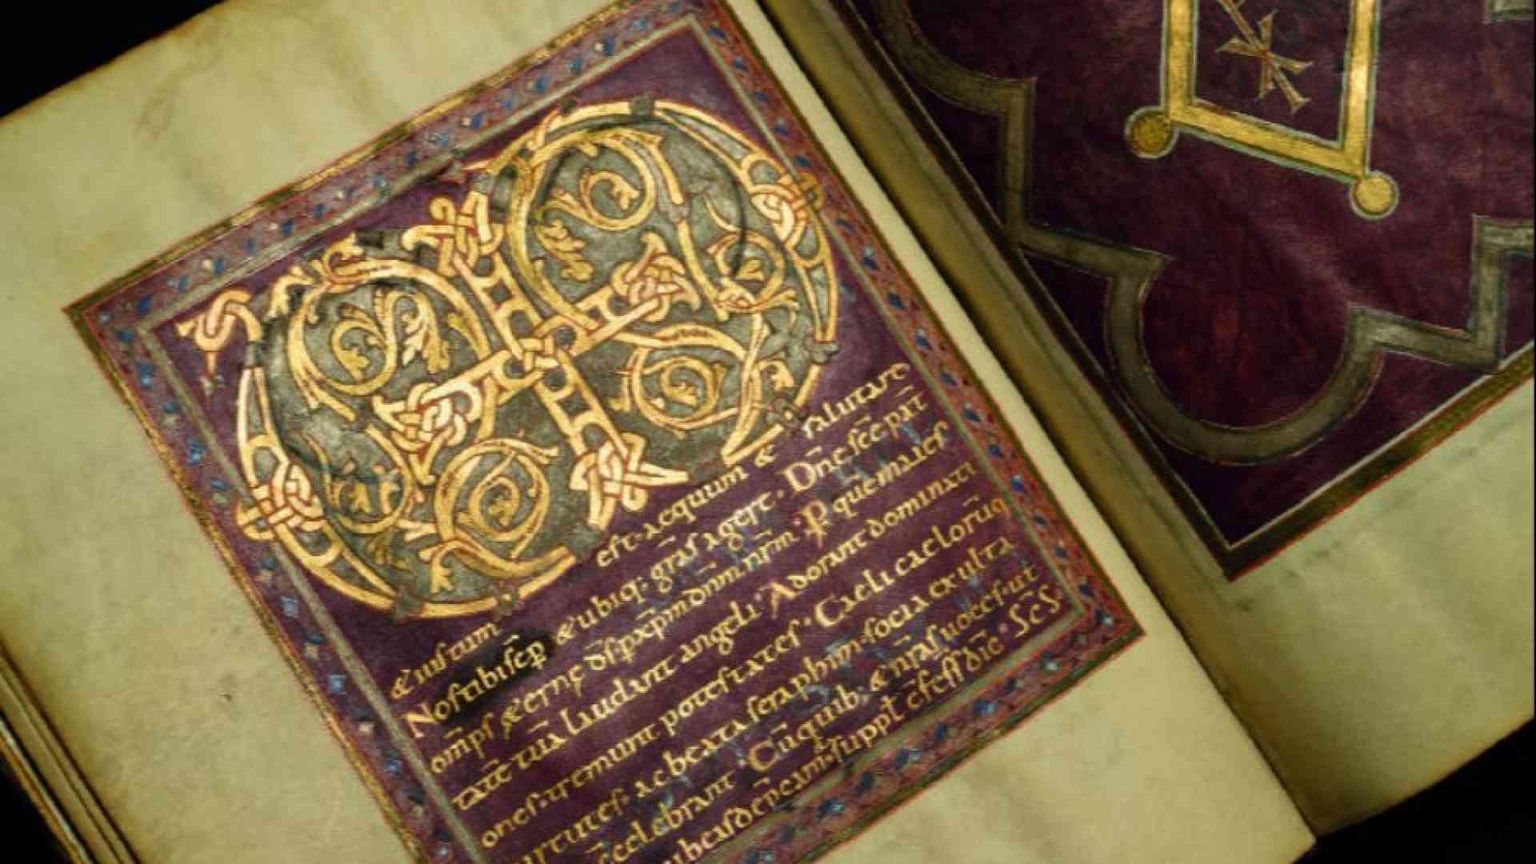 & iustum est aequum & salutare
Nos tibi sēp & ubiq; grās agere · Dn̄e scē pat̄
om̄ps aeterne d̄s p xp̄m dn̄m nr̄m · P quē maies
tatē tuā laudant angeli · Adorant dominati
ones · tremunt potestates · Caeli caelorūq
uirtutes · ac beata seraphim · socia exulta
c̄celebrant · Cū quib; & nr̄as uoces · ut
iubeas dep̄cam̄ · suppl̄ c̄fess̄ · dic̄ · Sc̄s